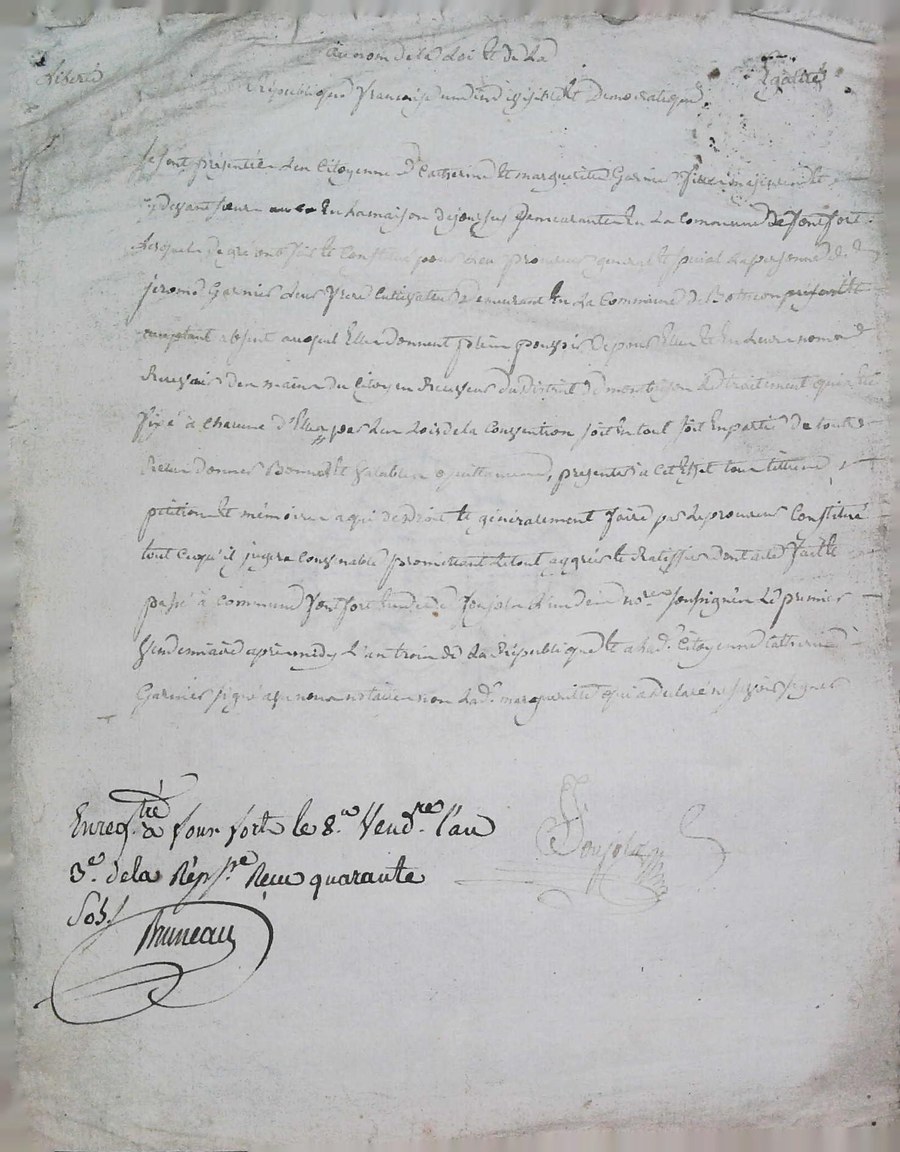 Au nom de la Loi et de La
Liberté Egalité
République française une indivisible et Democratique
se sont présentées les Citoyennes Catherine et margueritte Garnier filles majeures et
cy devant sœurs en La maison de demeurantes en La Commune de fontfort
Lesquelles de gré ont fait et Constitué pour leur procureur general et special La personne de
jerome Garnier leur frere Cultivateur demeurant en La Commune de Boën
absent auquel Elles donnent plein pouvoir de pour Elles et en Leurs noms
Recevoir des mains du Citoyen Receveur du District de montbrison Le traitement qui a été
fixé à chacune d'Elles par Les Lois de la Convention soit en tout soit en partie de toutes
donner Bonnes et valables quittances, presenter à Cet Effet tous
petitions et mémoires a qui de droit et généralement faire par Le procureur Constitué
tout Ce qu'il jugera Convenable promettant Le tout aggréer et Ratiffier dont acte fait et
passé à Commune fontfort Ponjolat L'un des nores soussignés Le premier
Vendemiaire après midy L'an trois de La République et a Lad. Citoyenne Catherine
Garnier signé avec nous notaire non Lad. margueritte qui a declaré ne sçavoir signer
Enregtré à font forte le 8.e Vend.re l'an
3.e de la Rep.e Reçu quarante
Sols
Bruneau